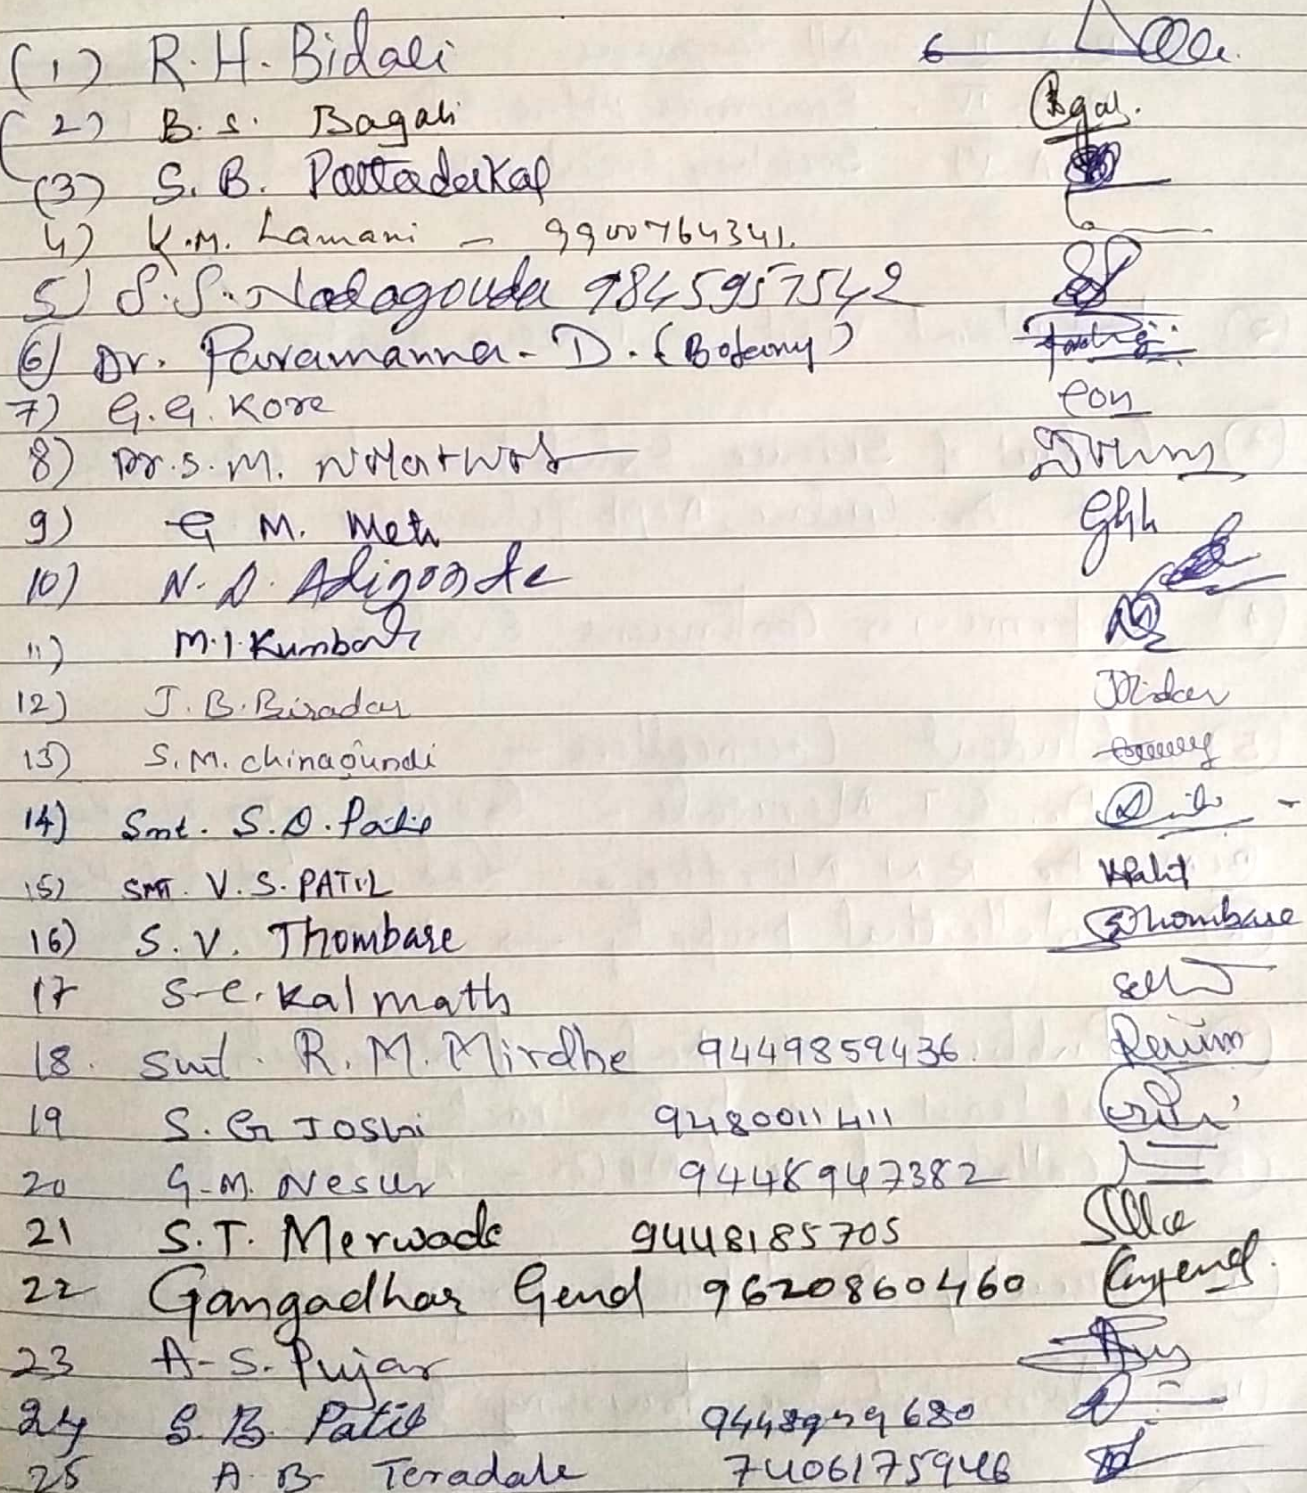 (1) R. H. Bidari
(2) B. S. Bagali Bgal.
(3) S. B. Pattadakal
4) K.M. Lamani - 9900764341.
5) S.S. Nadagouda 9845957542
6) Dr. Paramanna - D. (Botany)
7) G.G. Kore
8) Dr. S. M.
9) G M. Meti
10) N. D. Adigonde
11) M.I. Kumbar
12) J. B. Biradar
13) S. M. chinagundi
14) Smt. S. D. Patil
15) SMT. V. S. PATIL VPatil
16) S. V. Thombare SThombare
17 S-C. Kalmath
18. Smt. R. M. Mirdhe 9449859436.
19 S. G JOSHI 9480011411
20 G-M. Nesur 9448947382
21 S.T. Merwade 9448185705
22 Gangadhar Gend 9620860460
23 A-S. Pujar
24 S. B. Patil 9448979680
25 A. B Teradale 7406175946